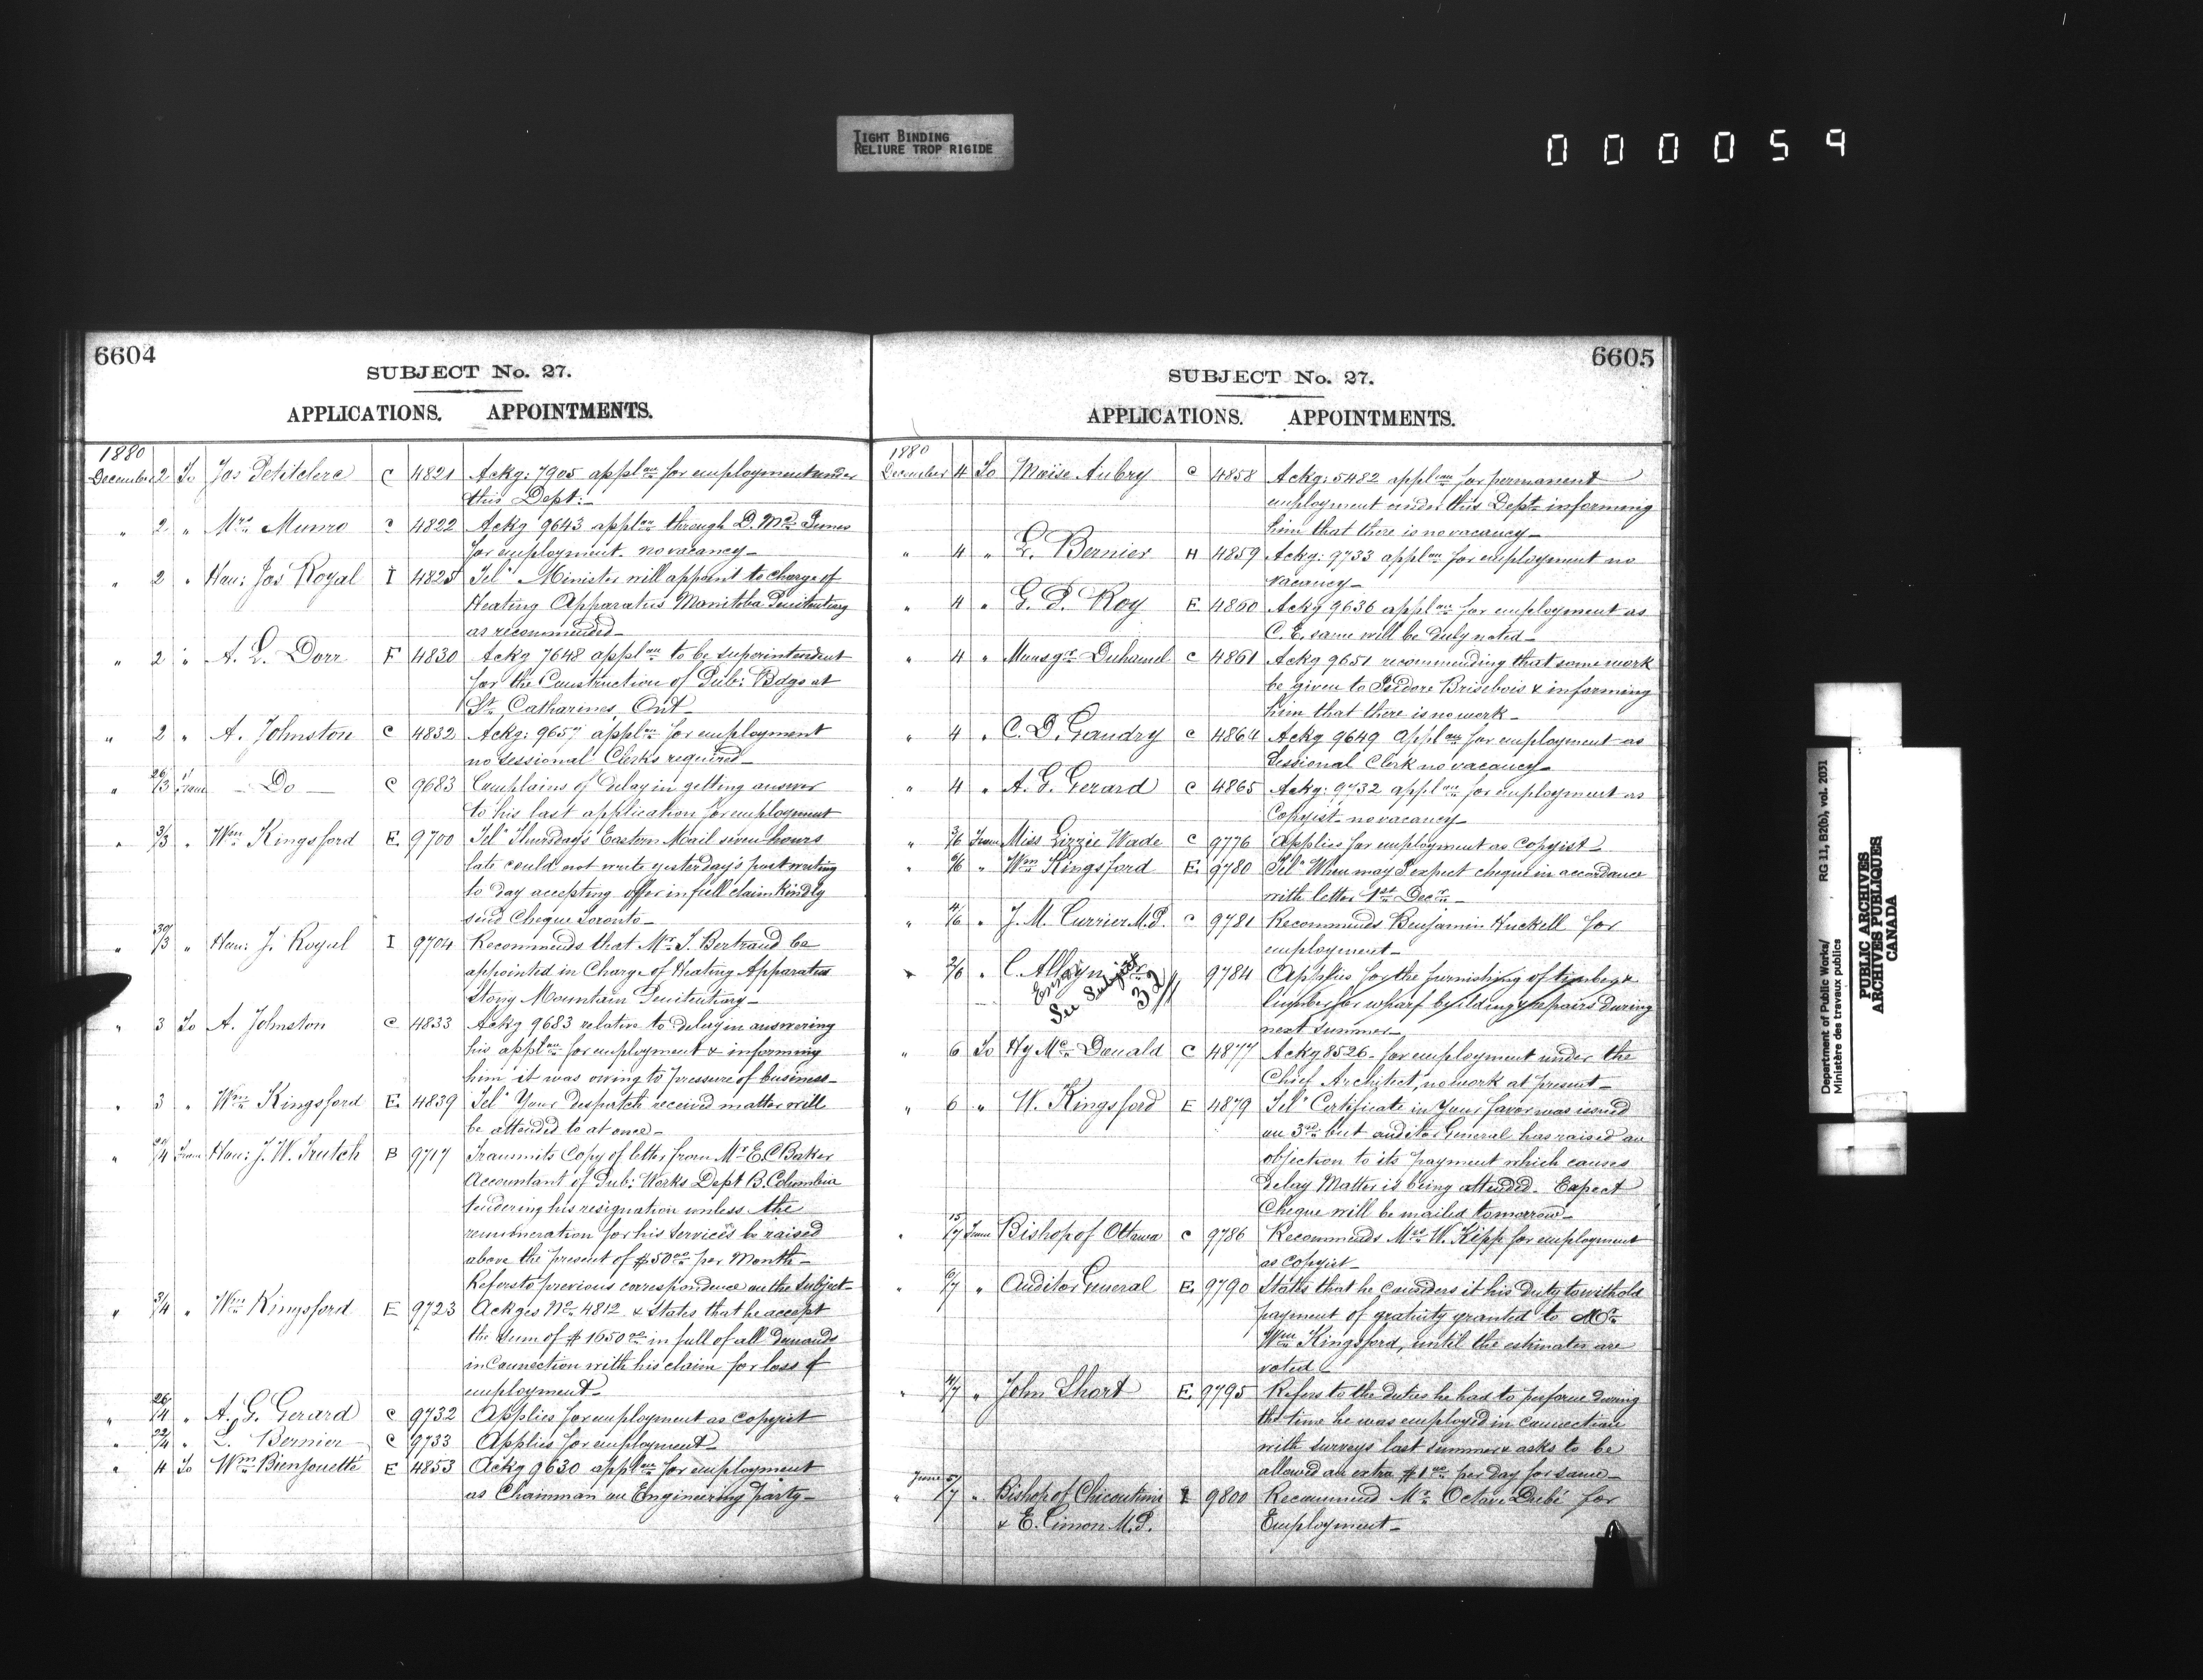 TIGHT BINDING
RELIURE TROP RIGIDE
000059
6604
SUBJECT No. 27.
APPLICATIONS. APPOINTMENTS.
1880
December 2 To Jos Petitclerc C 4821 Ackg: 7905 applon for employment under
this Dept:-
" 2 " Mrs Munro C 4822 Ackg 9643 applon through D. Mc Innes
for employment. no vacancy-
" 2 " Hon: Jos Royal I 4825 Tel" Minister will appoint to charge of
Heating Apparatus Manitoba Penitentiary
as recommended-
" 2 " A. L. Dorr F 4830 Ackg 7648 applon to be superintendent
for the Construction of Pub: Bdgs at
St. Catharines, Ont-
" 2 " A. Johnston C 4832 Ackg: 9657 applon for employment
no sessional Clerks required-
" 26/3 From - Do - C 9683 Complains of delay in getting answer
to his last application for employment
" 3/3 " Wm Kingsford E. 9700 Tel" Thursday's Eastern Mail seven hours
late could not write yesterday's post writing
to day accepting offer in full claim Kindly
send Cheque Toronto-
" 30/3 " Hon: J. Royal I 9704 Recommends that Mr. J. Bertrand be
appointed in Charge of Heating Apparatus
Stony Mountain Penitentiary-
" 3 To A. Johnston C 4833 Ackg 9683 relative to delay in answering
his applon for employment & informing
him it was owing to pressure of business-
" 3 " Wm Kingsford E. 4839 Tel" Your despatch received matter will
be attended to at once-
" /4 From Hon: J. W. Trutch B 9717 Transmits Copy of letter from Mr E. C Baker
Accountant of Pub: Works Dept B. Columbia
tendering his resignation unless the
remuneration for his services be raised
above the present of $50 00 per Month-
Refers to previous correspondence on the subject-
" 3/4 " Wm Kingsford E 9723 Ackges No 4812 & States that he accept
the sum of $1650 00 in full of all demands
in Connection with his claim for loss of
employment-
" 26/4 " A. G. Gerard C 9732 Applies for employment as copyist
" 22/4 " L. Bernier C 9733 Applies for employment-
" 4 To Wm Bienjouetté E 4853 Ackg 9630 applon for employment
as Chainman on Engineering party-
6605
SUBJECT No. 27.
APPLICATIONS. APPOINTMENTS.
1880
December 4 To Moïse Aubry C 4858 Ackg: 5482 applon for permanent
employment under this Dept. informing
him that there is no vacancy-
" 4 " L. Bernier H 4859 Ackg: 9733 applon for employment no
vacancy-
" 4 " G. P. Roy E 4860 Ackg 9636 applon for employment as
C. E. same will be duly noted-
" 4 " Monsgr Duhamel C 4861 Ackg 9651 recommending that some work
be given to Isidore Brisebois & informing
him that there is no work-
" 4 " C. D. Gaudry C 4864 Ackg 9649 applon for employment as
Sessional Clerk no vacancy-
" 4 " A. G. Gerard C 4865 Ackg: 9732 applon for employment as
Copyist- no vacancy-
" 3/6 From Miss Lizzie Wade C 9776 Applies for employment as Copyist-
" 6/6 " Wm Kingsford E. 9780 Tel" When may I expect cheque in accordance
with letter 1st Decr-
" 4/6 " J. M. Currier M.P. C 9781 Recommends Benjamin Huckell for
employment-
" 2/6 " C. Alleyn 9784 Applies for the furnishing of timber &
lumber for wharf building & repairs during
next summer-
Error
See Subject
32
" 6 To Hy Mc Donald C 4877 Ackg 8526. for employment under the
Chief Architect, no work at present-
" 6 " W. Kingsford E 4879 Tel" Certificate in your favor was issued
on 3rd but auditor General has raised an
objection to its payment which causes
delay Matter is being attended. Expect
Cheque will be mailed tomorrow-
" 15/7 From Bishop of Ottawa C 9786 Recommends Mrs W. Kipp for employment
as copyist-
" 6/7 " Auditor General E. 9790 States that he considers it his duty to withold
payment of gratuity granted to Mr
Wm Kingsford, until the estimates are
voted-
" 4/7 " John Short E. 9795 Refers to the duties he had to perform during
the time he was employed in connection
with surveys last summer & asks to be
allowed an extra $1 00 per day for same-
June
" 5/7 " Bishop of Chicoutimi I 9800 Recommend Mr Octave Dubé for
& E. Cimon M.P. Employment-
Department of Public Works/ RG 11, B2(b), vol. 2031
Ministère des travaux publics
PUBLIC ARCHIVES
ARCHIVES PUBLIQUES
CANADA